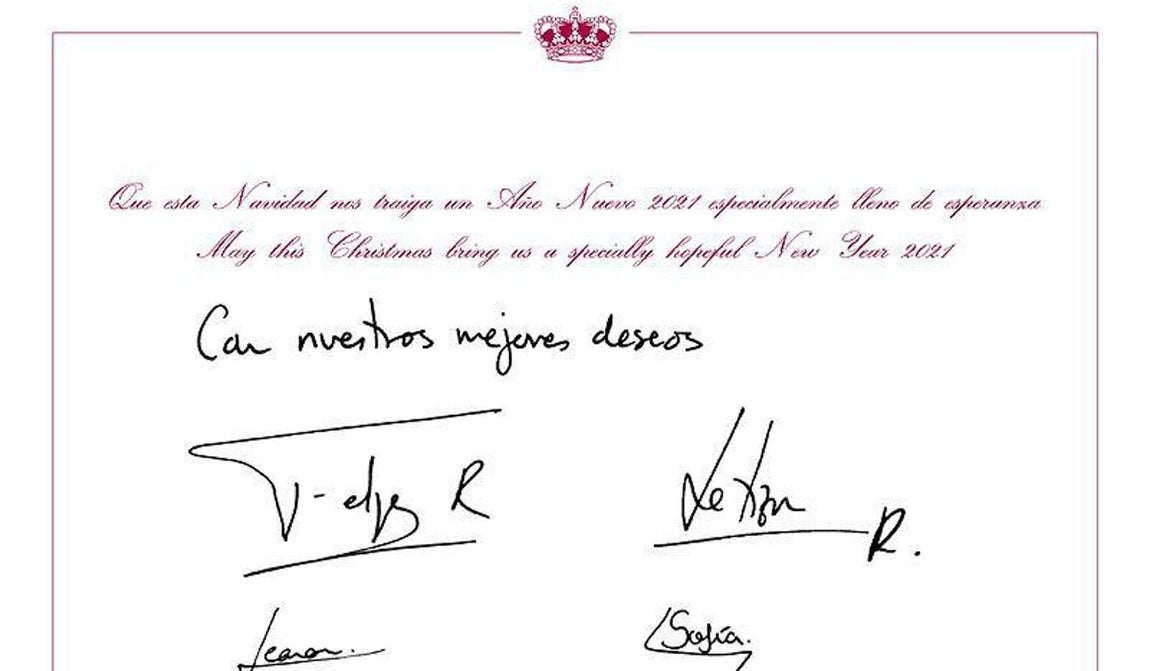 Que esta Navidad nos traiga un Año Nuevo 2021 especialmente lleno de esperanza
May this Christmas bring us a specially hopeful New Year 2021
Con nuestros mejores deseos
Felipe R Letizia R.
Leonor. Sofía.